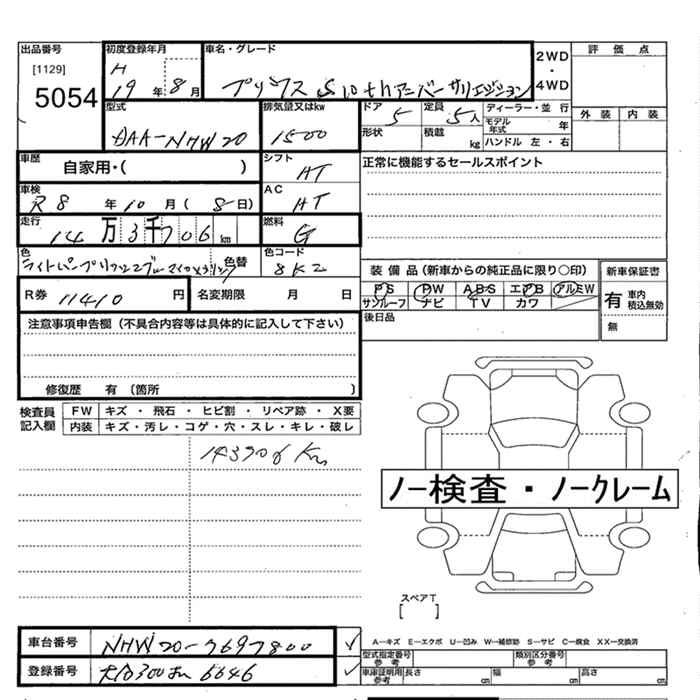 出品番号
[1129]
5054
初度登録年月
H
19 年 8 月
車名・グレード
プリウス S 10thアニバーサリーエディション
2WD
・
4WD
評価点
外装 内装
型式
DAA-NHW20
排気量又はkw
1500
ドア
5
定員
5人
ディーラー・並行
モデル年式 年
形状
積載 kg
ハンドル 左・右
車歴
自家用・( )
シフト
AT
正常に機能するセールスポイント
車検
R8 年 10 月 ( 8日)
AC
走行
14万3千706km
燃料
G
色
色替
色コード
8K2
装備品 (新車からの純正品に限り○印)
PS PW ABS エアB アルミW
サンルーフ ナビ TV カワ
新車保証書
有 車内積込無効
無
R券
11410 円
名変期限 月 日
後日品
注意事項申告欄(不具合内容等は具体的に記入して下さい)
修復歴 有 〔箇所 〕
検査員記入欄
FW キズ・飛石・ヒビ割・リペア跡・X要
内装 キズ・汚レ・コゲ・穴・スレ・キレ・破レ
143706 Km
ノー検査・ノークレーム
スペアT
[ ]
A-キズ E-エクボ U-凹み W-補修跡 S-サビ C-腐食 XX-交換済
車台番号
NHW20-7697800
登録番号
6646
型式指定番号 参考
類別区分番号 参考
車庫証明用 参考
長さ cm
幅 cm
高さ cm